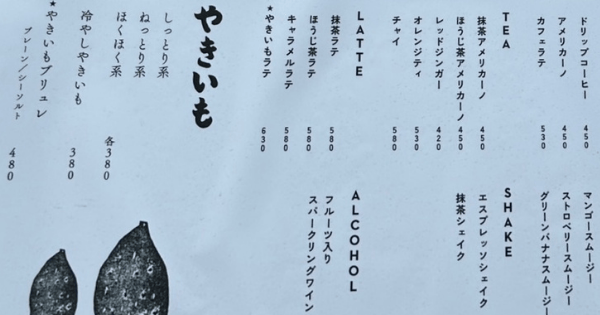 ドリップコーヒー 450
アメリカーノ 450
カフェラテ 530
TEA
抹茶アメリカーノ 450
ほうじ茶アメリカーノ 450
レッドジンガー 420
オレンジティ 530
チャイ 580
LATTE
抹茶ラテ 580
ほうじ茶ラテ 580
キャラメルラテ 580
★やきいもラテ 630
マンゴースムージー
ストロベリースムージー
グリーンバナナスムージー
SHAKE
エスプレッソシェイク
抹茶シェイク
ALCOHOL
フルーツ入り
スパークリングワイン
やきいも
しっとり系
ねっとり系
ほくほく系
各380
冷やしやきいも 380
★やきいもブリュレ
プレーン/シーソルト 480